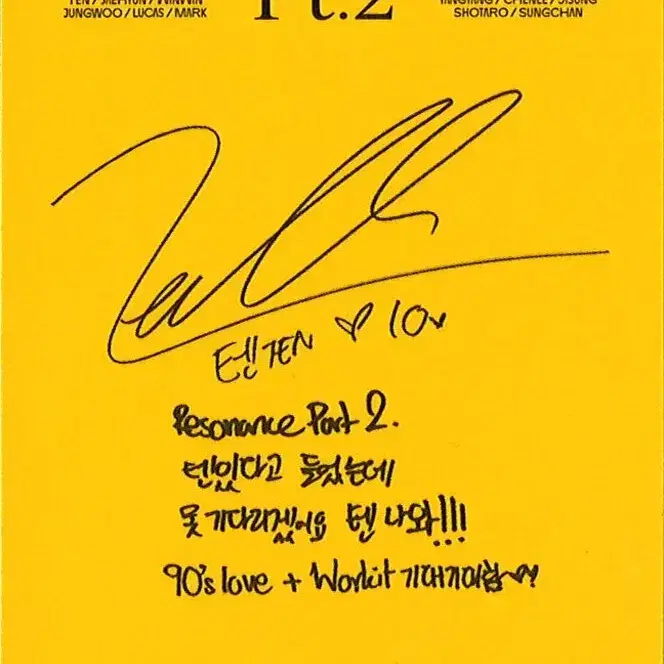 TEN / JAEHYUN / WINWIN
JUNGWOO / LUCAS / MARK
Pt.2
YANGYANG / CHENLE / JISUNG
SHOTARO / SUNGCHAN
텐 TEN ♡ 10
Resonance Part 2.
텐있다고 들었는데
못 기다리겠어요 텐 나와!!!
90's love + Workit 기대기대함